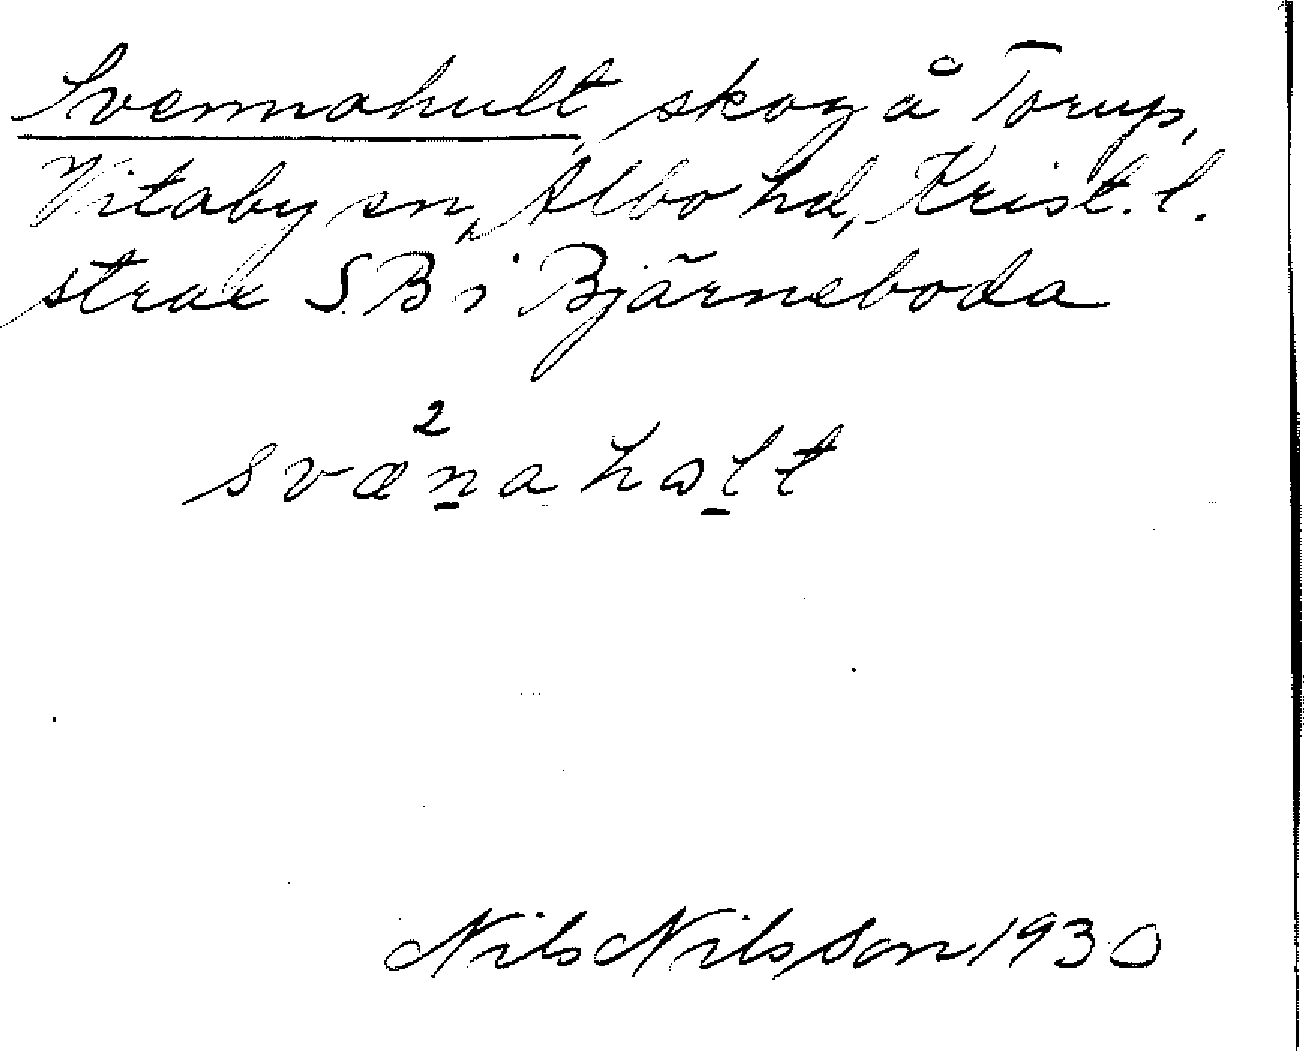 Svennahult, skog å Torup,
Vitaby sn, Albo hd, Krist. l.
strax S. B i Bjärneboda
2
svænahalt
Nils Nilsson 1930